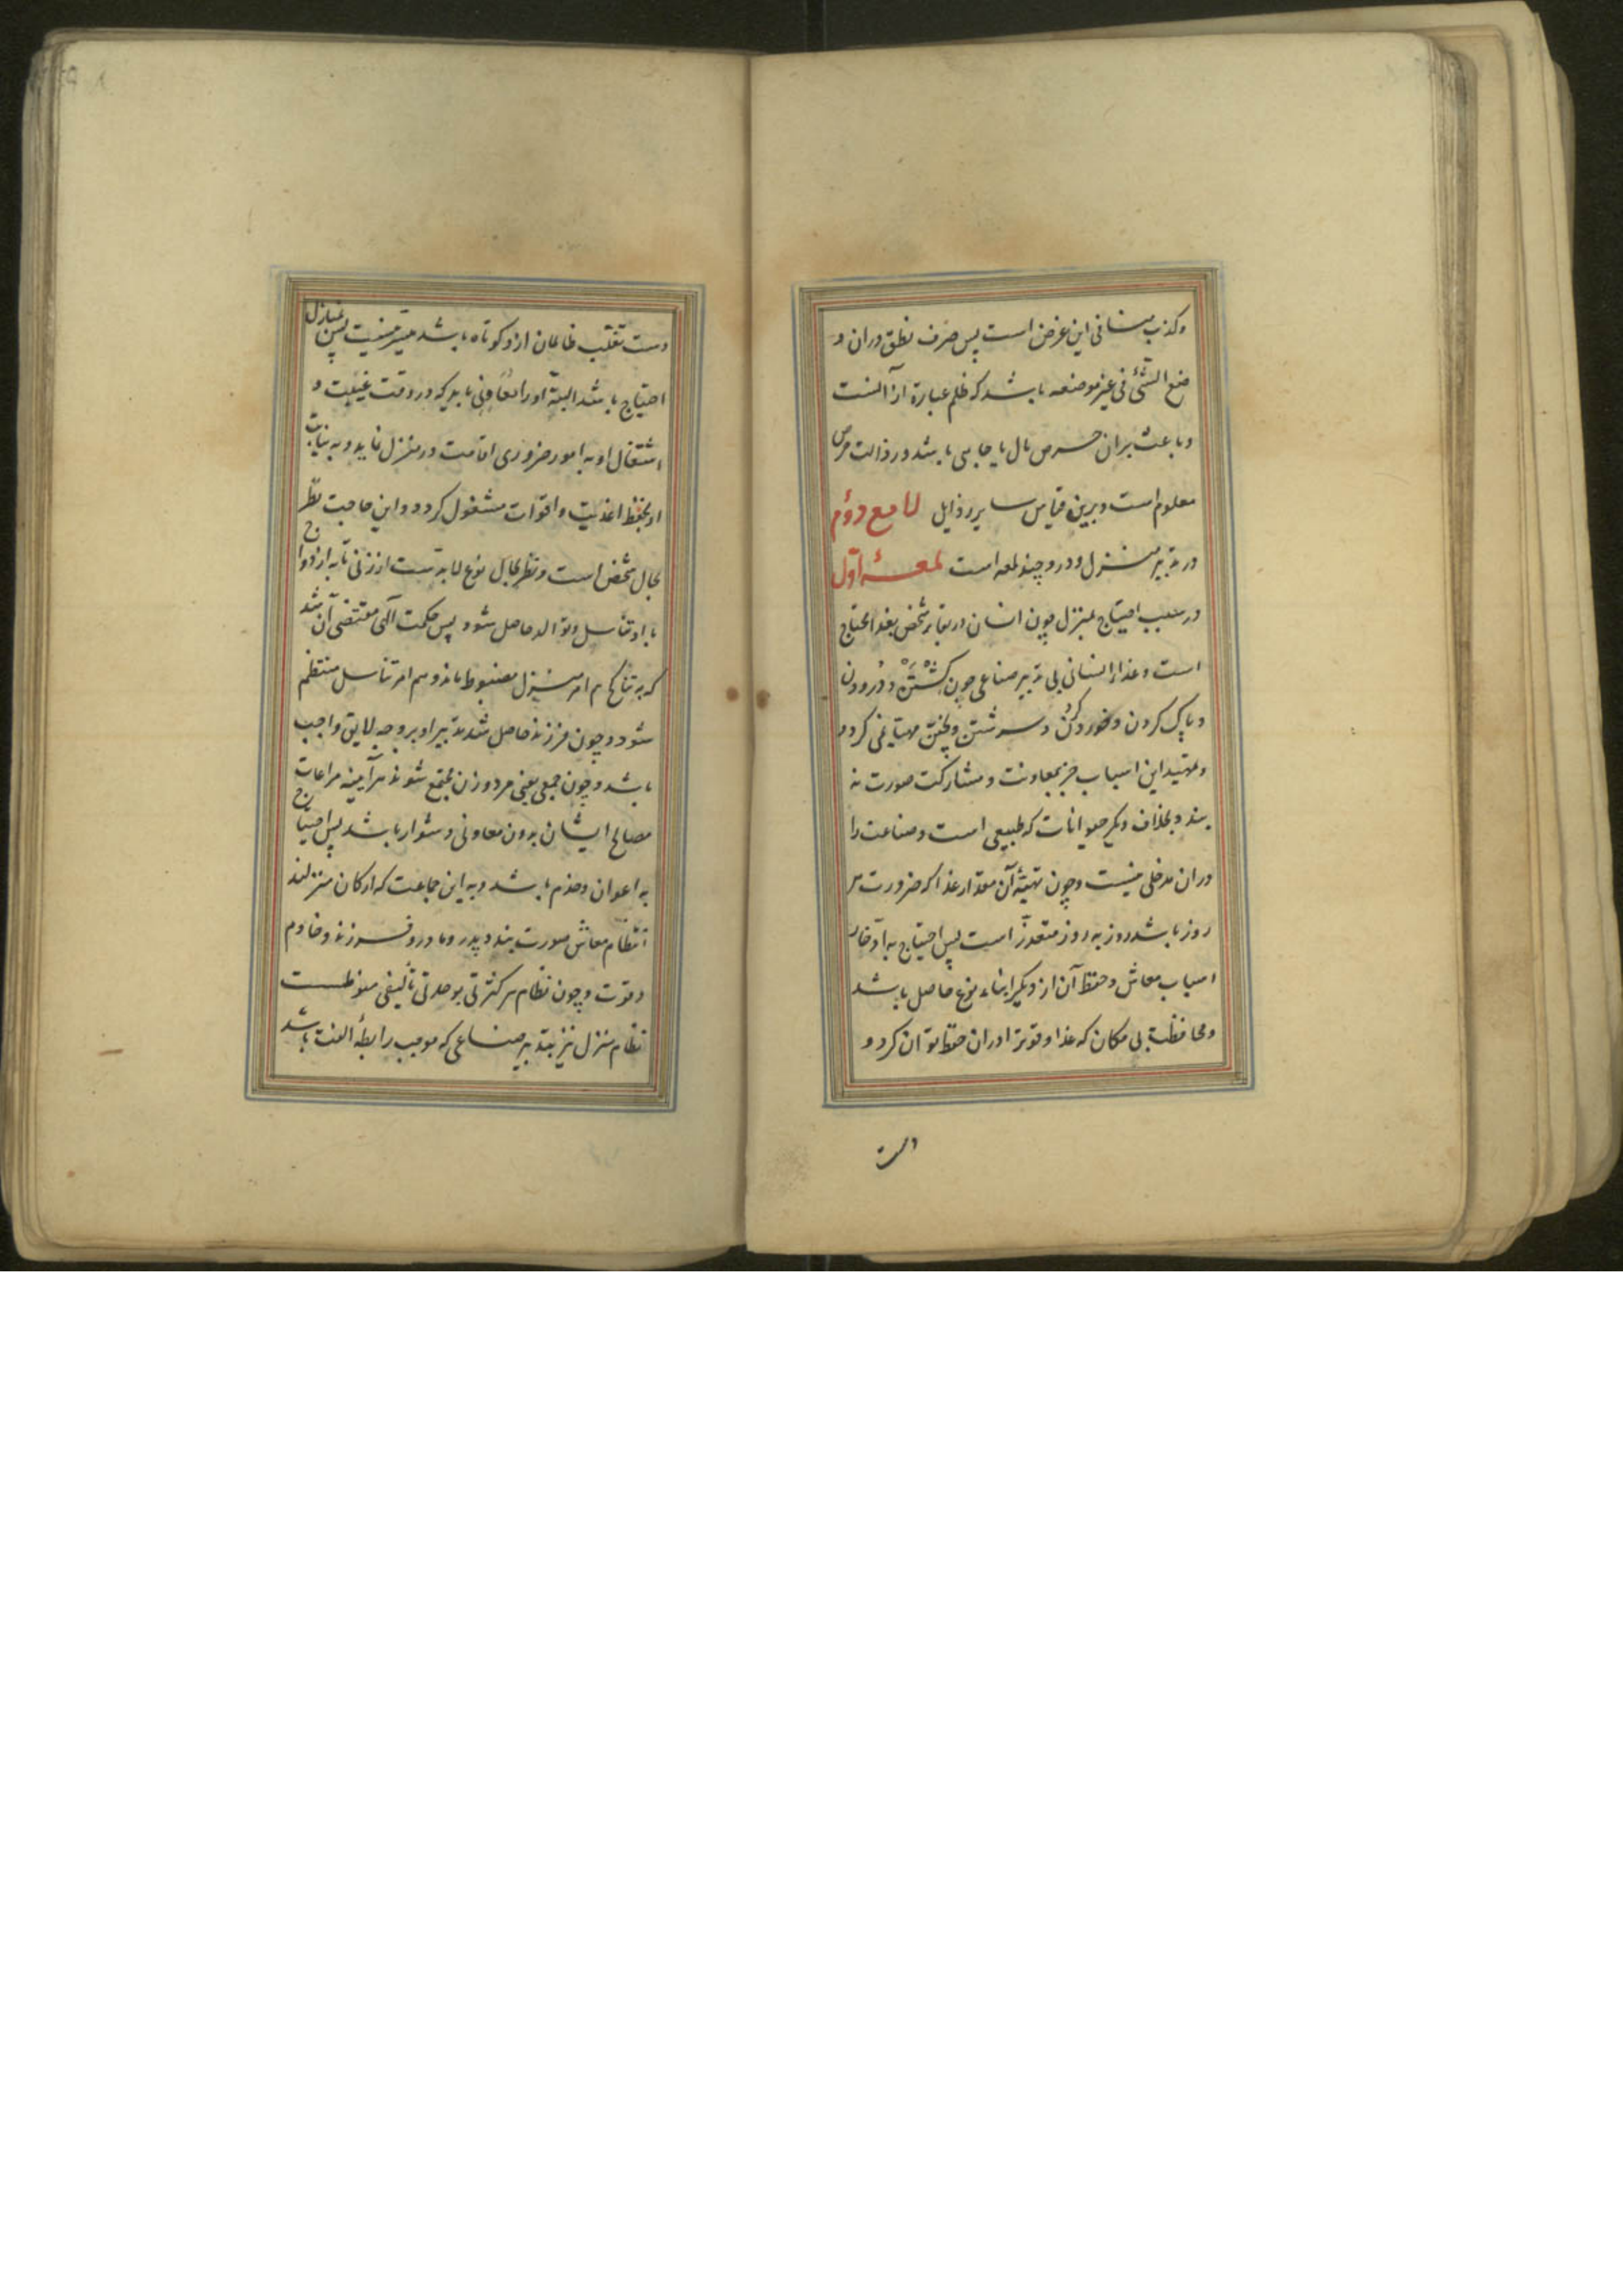 وکذب منافی این غرض است پس صرف نطق دران و
ضع الشئ فی غیر موضعه باشد که ظلم عبارة از آنست
و باعث بران حرص مال یا جاهی باشد و رذالت حرص
معلوم است و برین قیاس سایر رذایل لامع دوم
در تدبیر منزل و درو چند لمعه است لمعهٔ اول
در سبب احتیاج بمنزل چون انسان در بقاء شخص بغذا محتاج
است و غذاء انسانی بی تدبیر صناعی چون کشتن و درودن
و پاک کردن و خورد کردن و سرشتن و پختن مهیا نمی کردد
و تمهید این اسباب جز بمعاونت و مشارکت صورت نه
بندد بخلاف دیکر حیوانات که طبیعی است و صناعت را
دران مدخلی نیست و چون تهیئه آن مقدار غذا که ضرورت هر
روز باشد روز به روز متعذر است پس احتیاج به ادخار
اسباب معاش و حفظ آن از دیکر ابناء نوع حاصل باشد
و محافظت بی مکان که غذا و قوت را دران حفظ توان کرد و
دست
دست تغلب ظالمان ازو کوتاه باشد میسر نیست پس بمنازل
احتیاج باشد البته او را معاونی باید که در وقت غیبت و
اشتغال او به امور ضروری اقامت در منزل نماید و به نیابت
او بحفظ اغذیه و اقوات مشغول کردد و این حاجت نظر
بحال شخص است و نظر بحال نوع لابدست از زنی تا به ازدواج
با او تناسل و توالد حاصل شود پس حکمت الهی مقتضی آن شد
که به تناکح هم امر منزل مضبوط ماند و هم امر تناسل منتظم
شود و چون فرزند حاصل شد تدبیر او بر وجه لایق واجب
باشد و چون جمعی یعنی مرد و زن مجتمع شوند هرآینه مراعات
مصالح ایشان بدون معاونی دشوار باشد پس احتیاج
به اعوان و خدم باشد و به این جماعت که ارکان منزلند
انتظام معاش صورت بندد پدر و مادر و فرزند و خادم
و قوت و چون نظام هر کثرتی بوحدتی تألیفی منوطست
نظام منزل نیز بتدبیر صناعی که موجب رابطهٔ الفت باشد